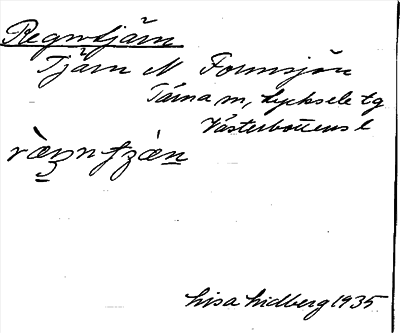 Regntjärn
Tjärn N Forsnsjön
Tärna sn, Lycksele tg
Västerbottens l
Lisa Lidberg 1935